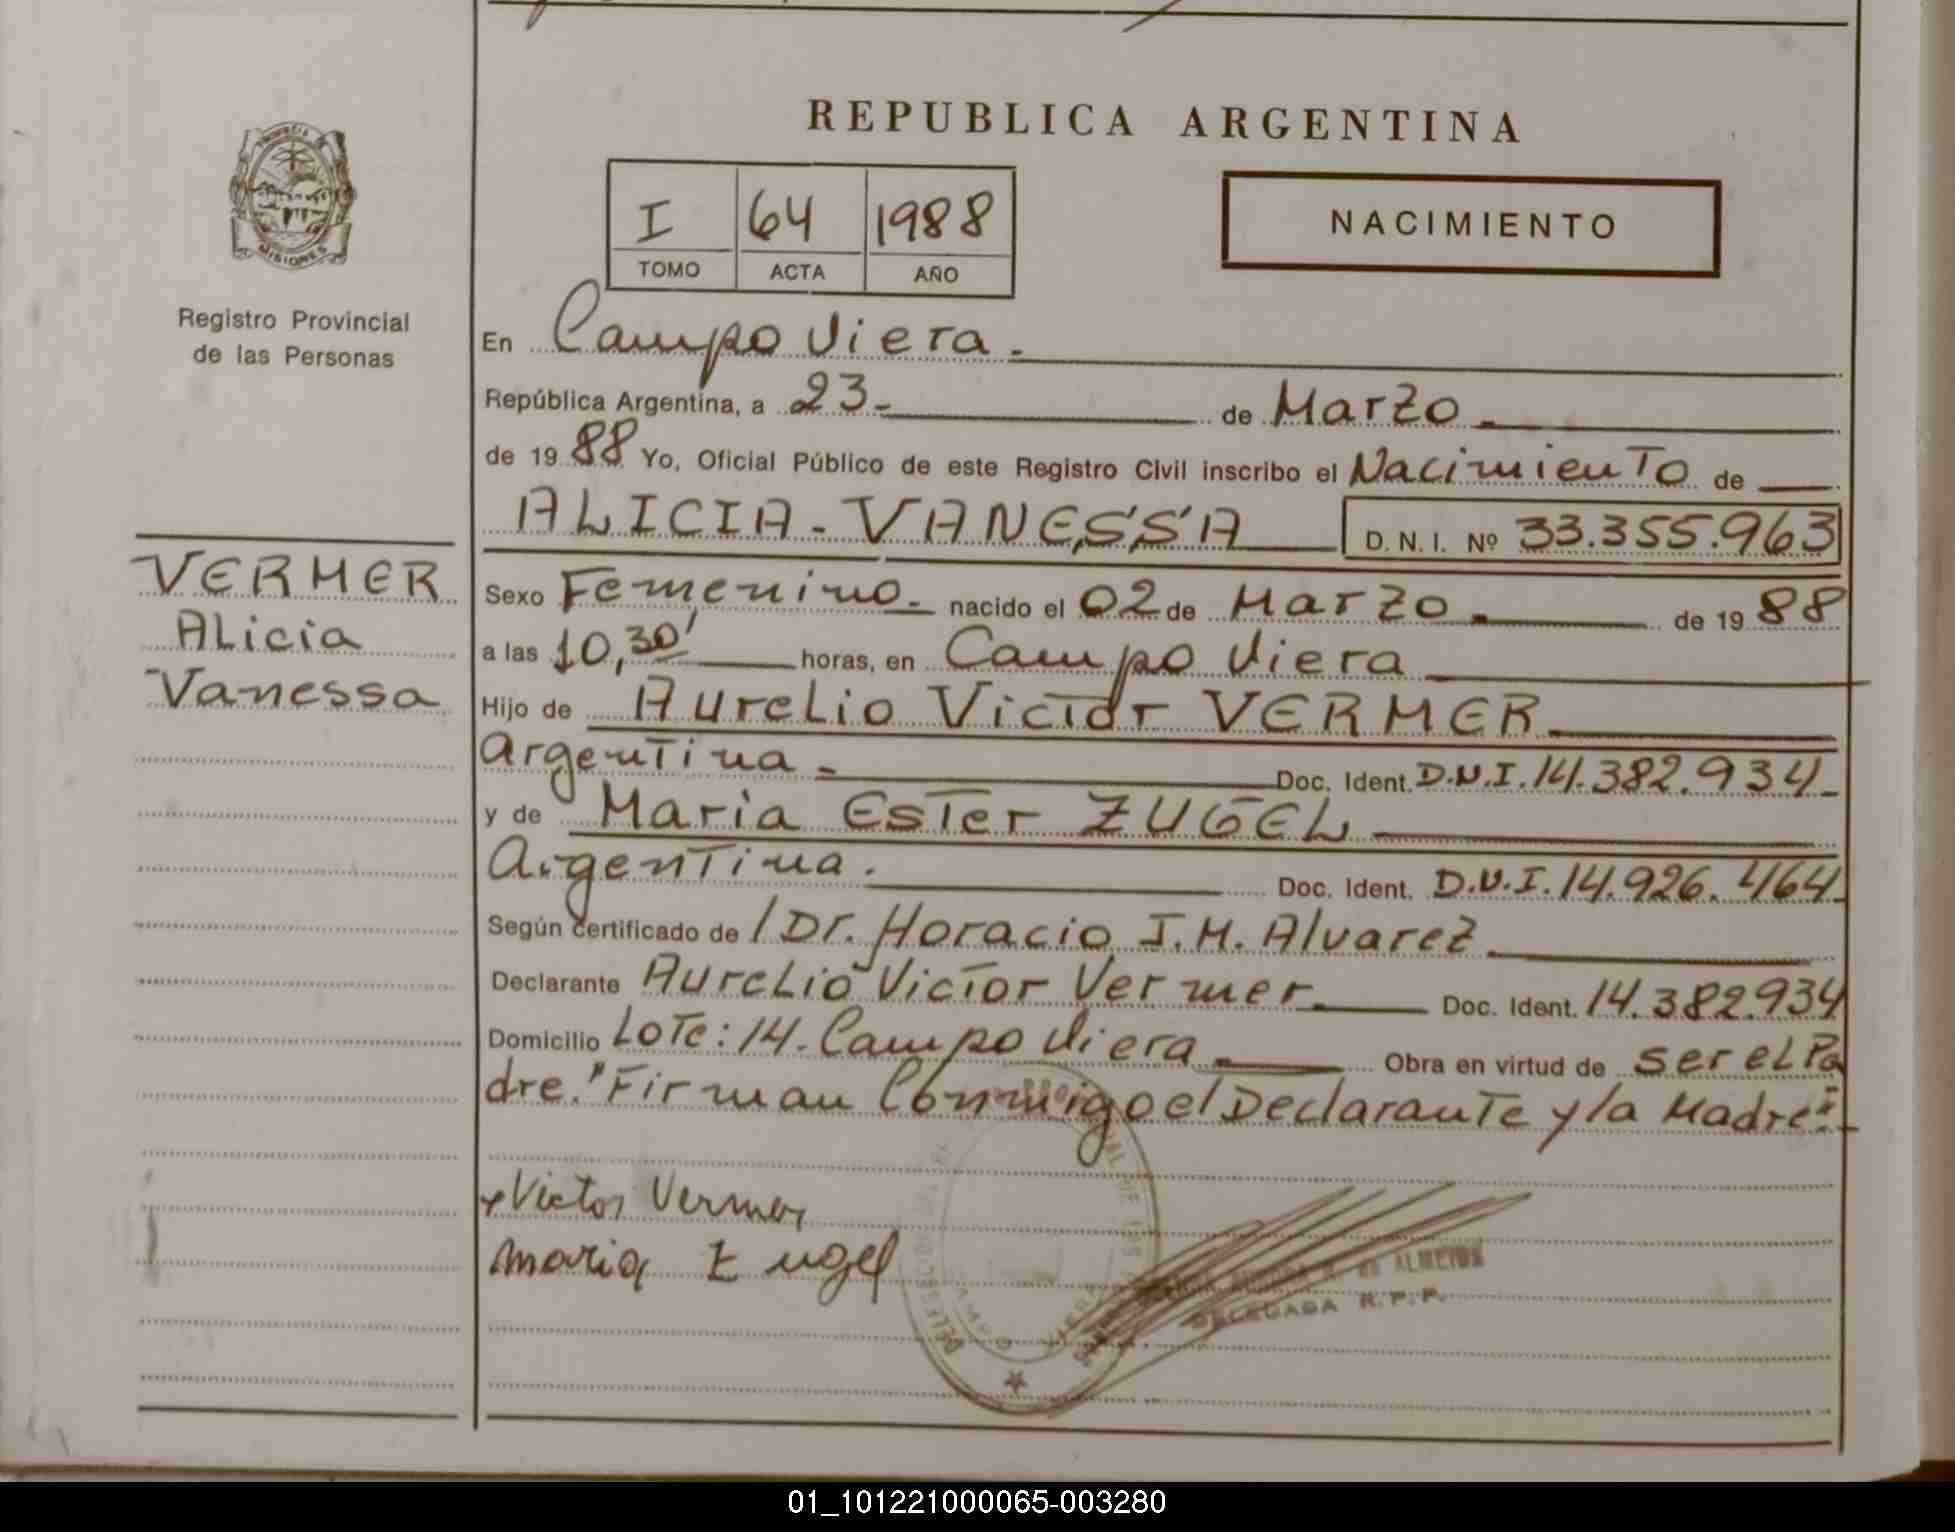 REPUBLICA ARGENTINA
MISIONES
Registro Provincial
de las Personas
I 64 1988
TOMO ACTA AÑO
NACIMIENTO
En Campo Viera.
República Argentina, a 23 de Marzo
de 1988 Yo, Oficial Público de este Registro Civil inscribo el Nacimiento de
ALICIA-VANESSA D. N. I. Nº 33.355.963
VERMER
Alicia
Vanessa
Sexo Femenino. nacido el 02 de Marzo. de 1988
a las 10,30' horas, en Campo Viera
Hijo de Aurelio Victor VERMER
Argentina. Doc. Ident. D.N.I. 14.382.934
y de Maria Ester ZUGEL
Argentina. Doc. Ident. D.N.I. 14.926.464
Según certificado de / Dr. Horacio J.M. Alvarez
Declarante Aurelio Victor Vermer Doc. Ident. 14.382.934
Domicilio Lote: 14. Campo Viera Obra en virtud de ser el Pa
dre. "Firman Conmigo el Declarante y la Madre".
Victor Vermer
Maria
ALMEIDA
DELEGADA R.P.P.
CAMPO VIERA
01_101221000065-003280